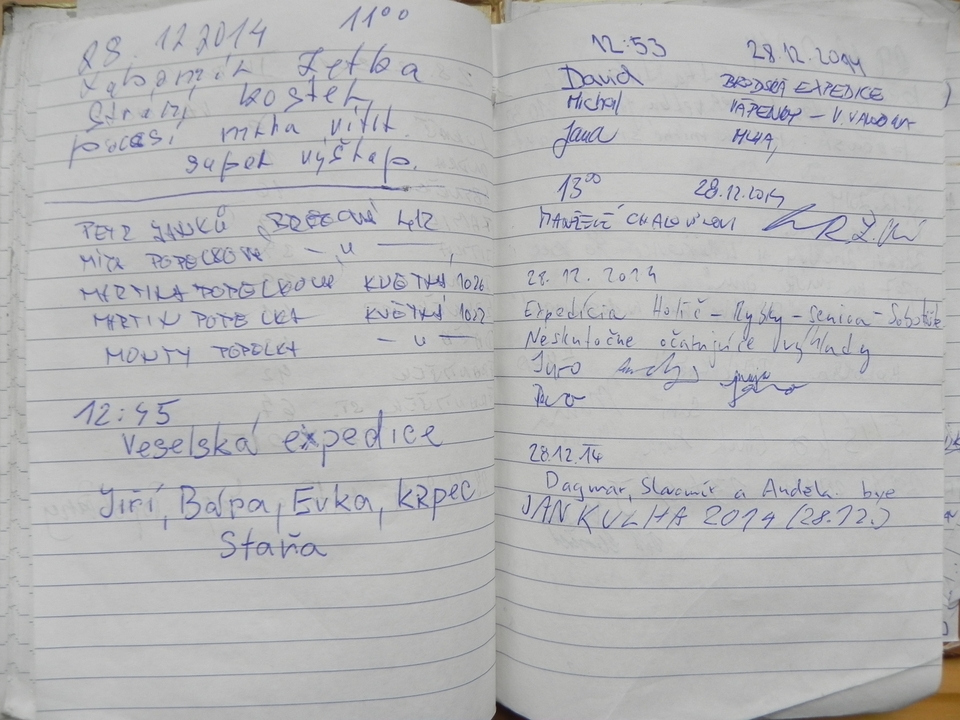 28. 12 2014 11⁰⁰
Zetka
Strání, kostel,
počasí mlha vítr
super výšlap.
PETR JANKŮ BŘEZOVÁ 412
MÍŠA POPELKOVÁ — " —
MARTINA POPELKOVÁ KVĚTNÁ 1026
MARTIN POPELKA KVĚTNÁ 1022
MONTY POPELKA — " —
12:45
Veselská expedice
Jiří, Bára, Evka, krpec
Staňa
12:53 28.12.2014
David BRODSKÁ EXPEDICE
Michal VÁPENKY – V. JAVOŘINA
Jana MLHA,
13⁰⁰ 28.12.2014
MANŽELÉ
28. 12. 2014
Expedícia Holíč – Rybky – Senica – Sobotište
Neskutočne očarujúce výhľady
Juro
28.12.14
Dagmar, Slavomír a Anděla. bye
JAN KULHA 2014 (28.12.)